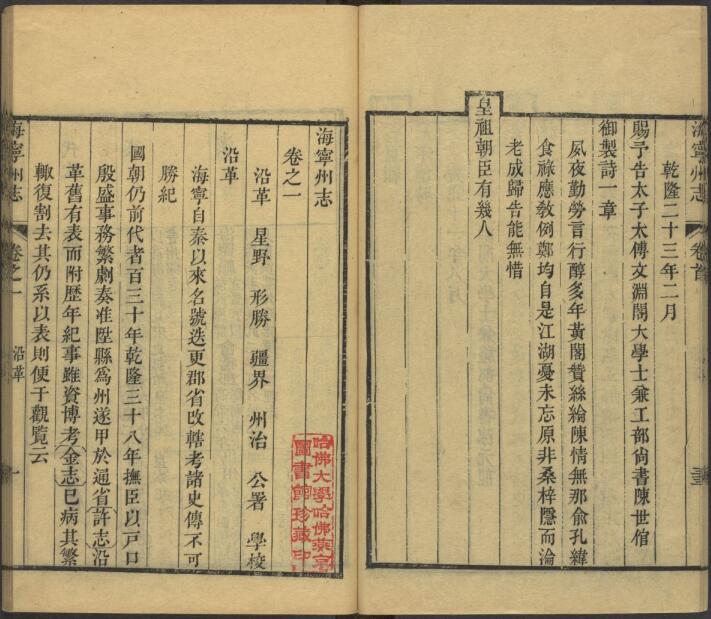 海寧州志 卷首 三
乾隆二十三年二月
賜予告太子太傅文淵閣大學士兼工部尚書陳世倌
御製詩一章
夙夜勤勞言行醇多年黃閣贊絲綸陳情無那俞孔緯
食祿應敎例鄭均自是江湖憂未忘原非桑梓隱而淪
老成歸告能無惜
皇祖朝臣有幾人
哈佛大學哈佛燕京
圖書館珍藏印
海寧州志
卷之一
沿革 星野 形勝 疆界 州治 公署 學校
沿革
海寧自秦以來名號迭更郡省改轄考諸史傳不可
勝紀
國朝仍前代者百三十年乾隆三十八年撫臣以戸口
殷盛事務繁劇奏准陞縣爲州遂甲於通省許志沿
革舊有表而附歷年紀事雖資博考金志已病其繁
輙復割去其仍系以表則便于觀覽云
海寧州志 卷之一 沿革 一